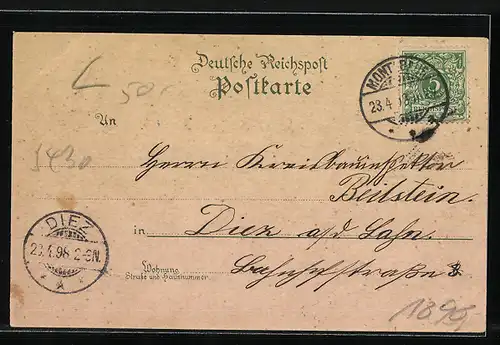 Deutsche Reichspost
Postkarte
An
L 50.-
5430
Herrn Kreisbauinspektor
Beilstein.
in Diez a/d Lahn.
Bahnhofstraße 3.
Wohnung
Straße und Hausnummer
DIEZ
23.4.98. 2-3N.
MONT
23.4.
1898